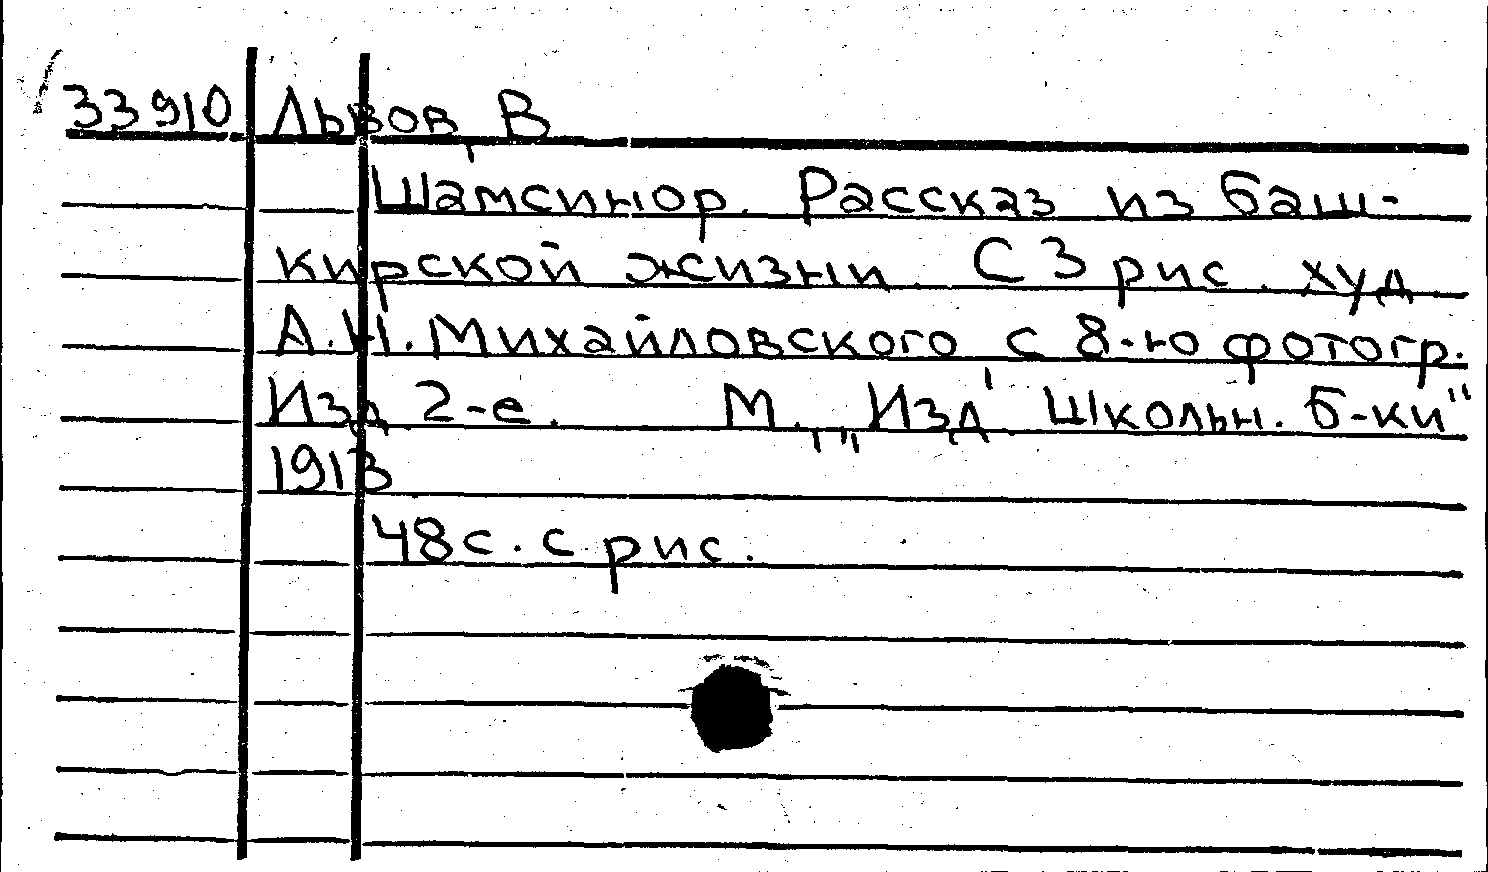 33910 Львов, В
Шамсинор. Рассказ из баш-
кирской жизни. С 3 рис. худ
А.Н. Михайловского с 8-ю фотогр.
Изд 2-е. М., „Изд' Школьн. б-ки"
1913
48 с. с рис.